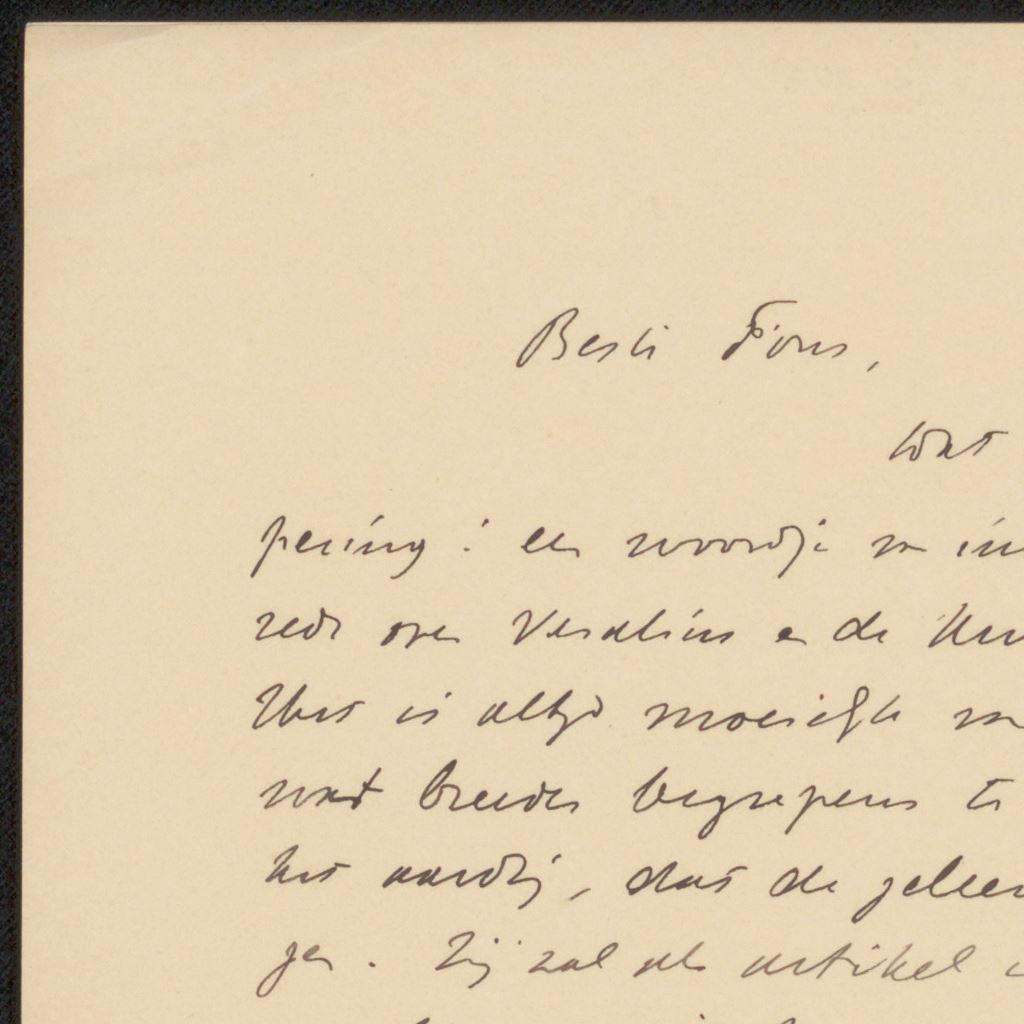 Beste Fons,
wat
pering: een woordje van in
rede over Vesalius en de
Het is altijd moeielijk
wat breeder begrepens te
het aardig, dat de geleer
gen. Zij zal als artikel